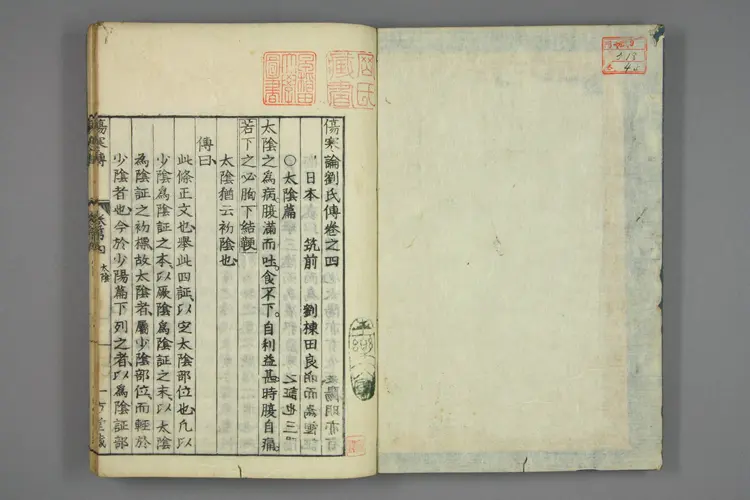 傷寒論劉氏傳卷之四
日本 筑前 劉棟田良
○太陰篇
太陰之為病腹滿而吐食不下自利益甚時腹自痛
若下之必胸下結鞕
太陰猶云初陰也
傳曰
此條正文也舉此四証以定太陰部位也凡以
少陰為陰証之本以厥陰為陰証之末以太陰
為陰証之初標故太陰者屬少陰部位而輕於
少陰者也今於少陽篇下列之者以為陰証部
傷寒傳
太陰
藏書